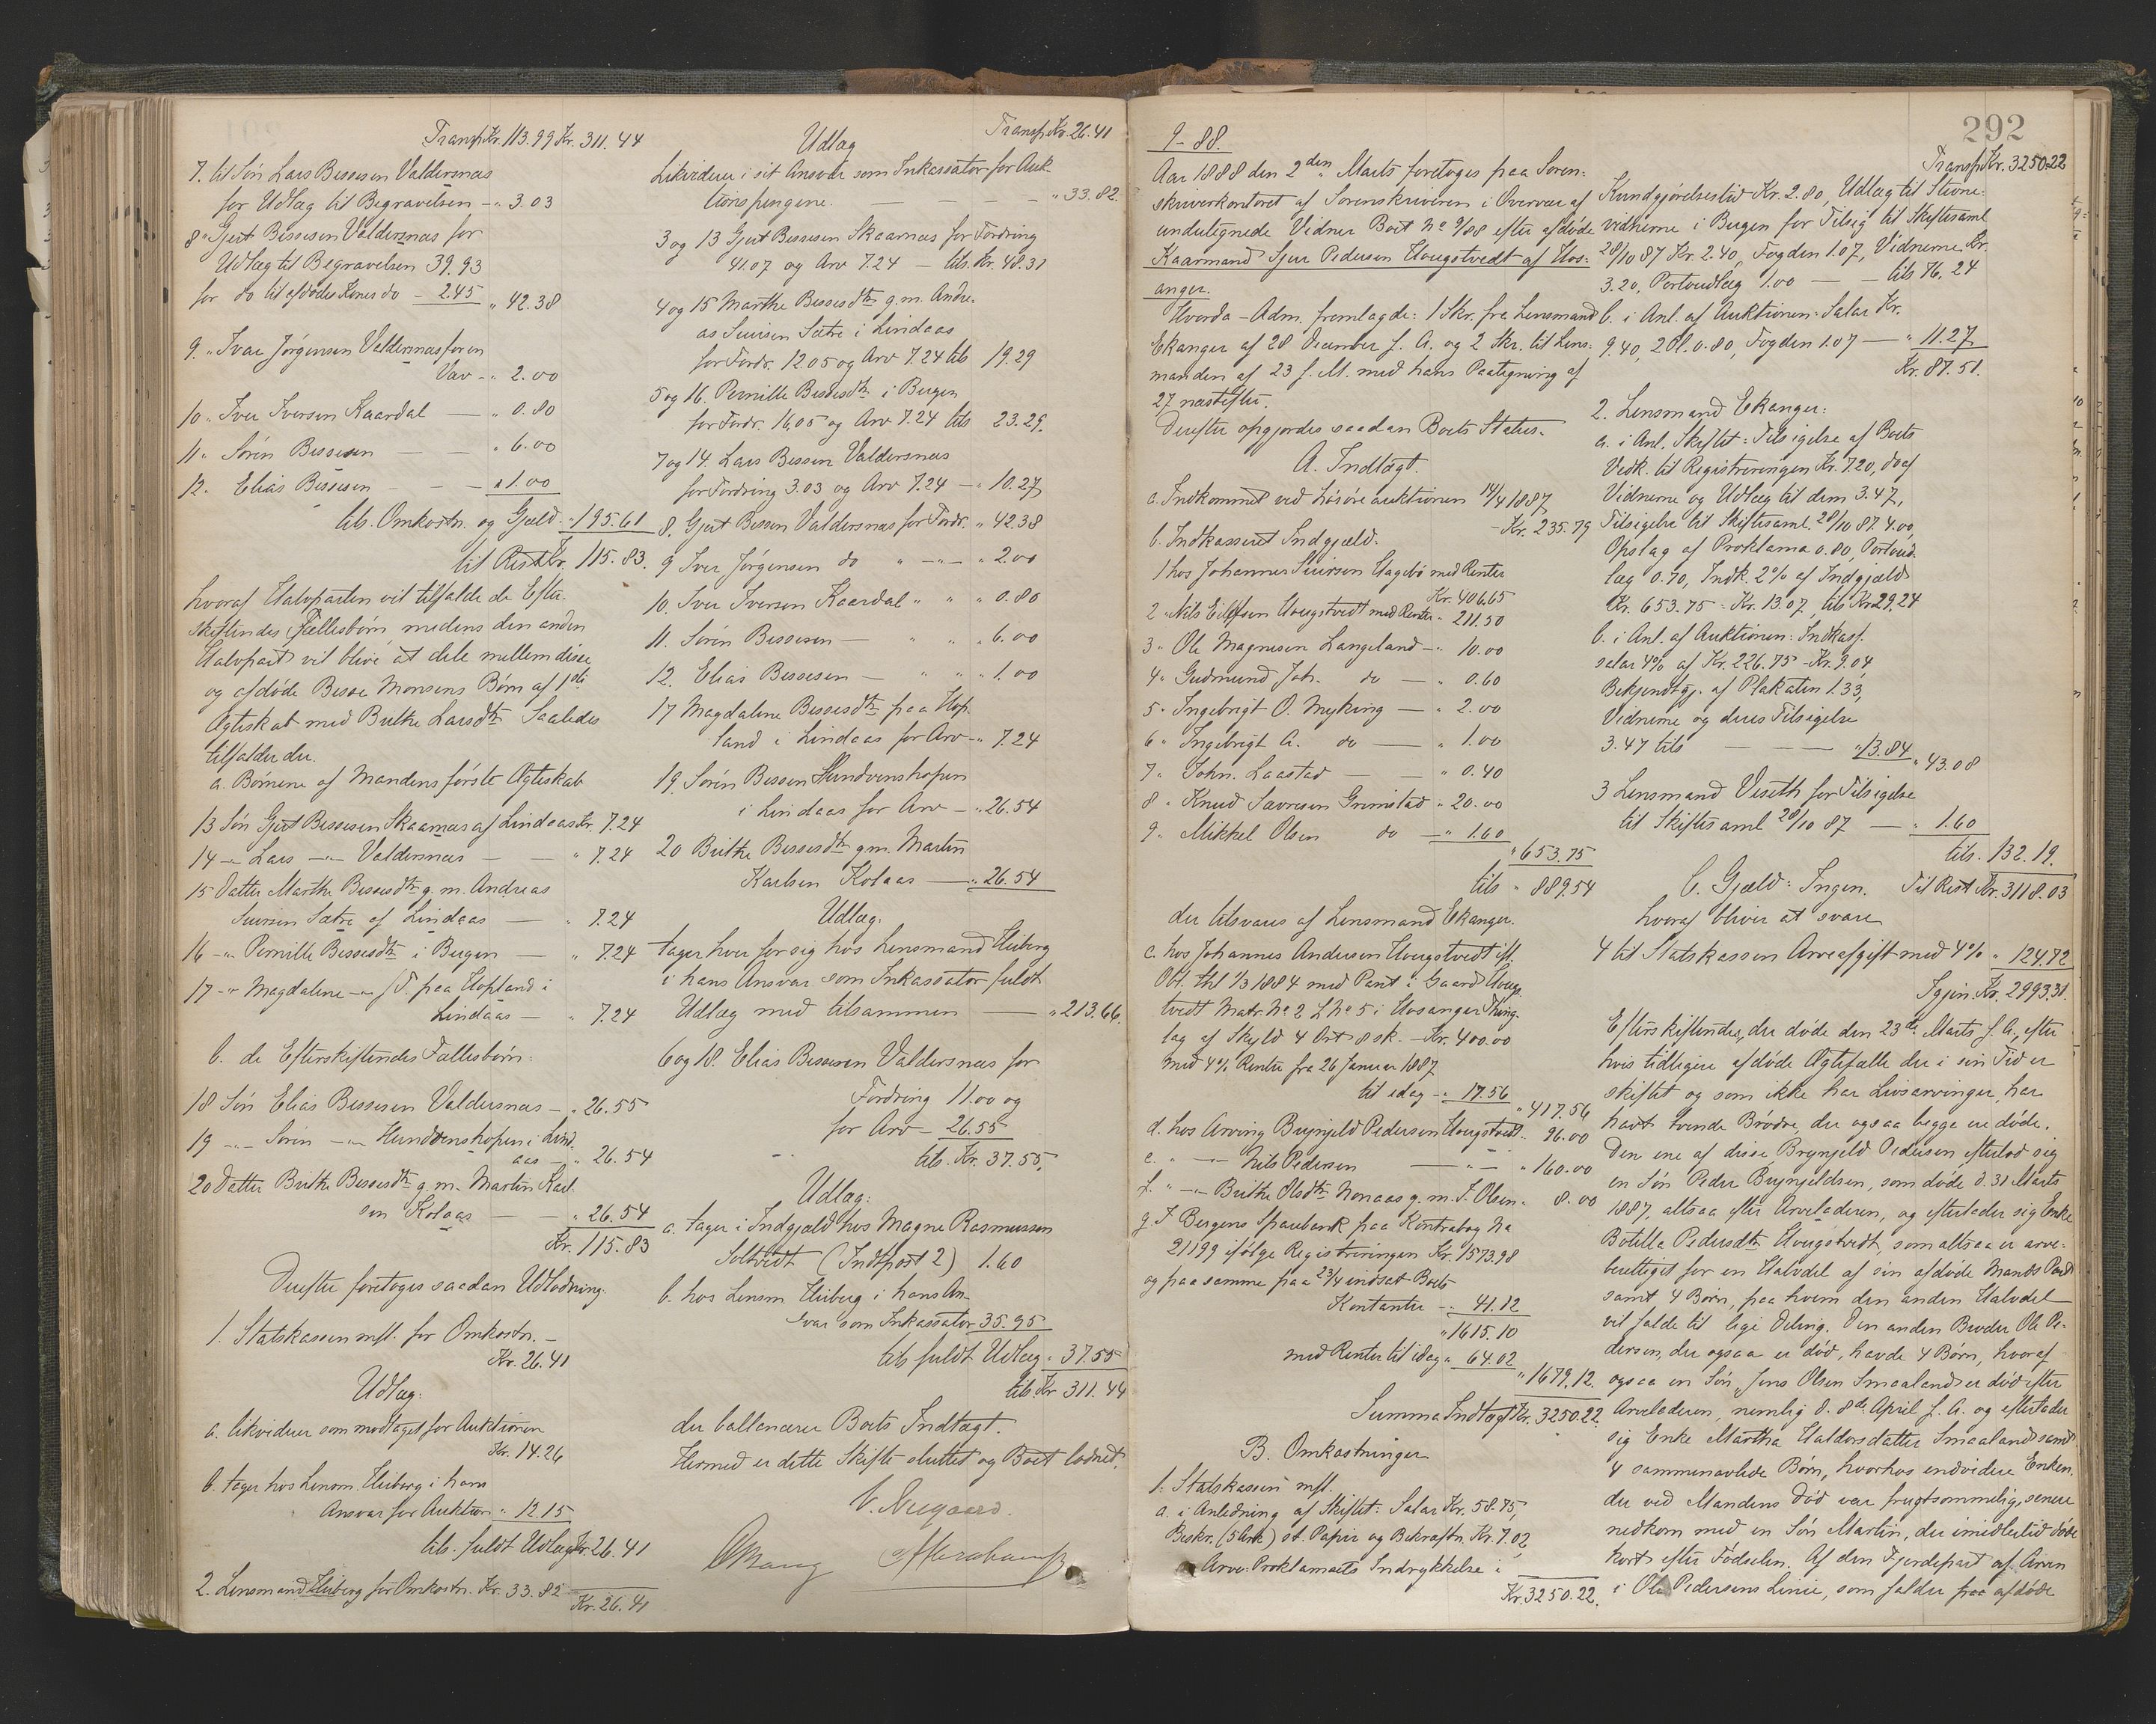 Transp. Kr. 113.99 Kr. 311.44
7. til Søn Lars Bessesen Valdersnæs
for Udlæg til Begravelsen — " 3.03
8 " Gjert Bessesen Valdersnæs for
Udlæg til Begravelsen 39.93
for do til afdødes Kones do - 2.45 " 42.38
9. " Ivar Jørgensen Valdersnæs for en
Vav - " 2.00
10 " Iver Iversen Kaardal — " 0.80
11 " Søren Bessesen — — " 6.00
12. Elias Bessesen — — " 1.00
tils. Omkostn. og Gjæld " 195.61
til Rest Kr. 115.83.
hvoraf Halvparten vil tilfalde de Efter-
skiftendes Fællesbørn medens den anden
Halvpart vil blive at dele mellem disse
og afdøde Besse Monsens Børn af 1ste
Ægteskab med Brithe Larsdtr. Saaledes
tilfalder der.
a. Børnene af Mandens første Ægteskab
13 Søn Gjert Bessesen Skaarnæs af Lindaas Kr. 7.24
14 -"- Lars -"- Valdersnæs — " 7.24
15 Datter Marthe Bessesdtr g. m. Andreas
Siursen Sætre af Lindaas — " 7.24
16 -"- Pernille Bessesdtr i Bergen — " 7.24
17 -"- Magdalene -"- f. T. paa Hopland i
Lindaas — " 7.24
b. de Efterskiftendes Fællesbørn:
18 Søn Elias Bessesen Valdersnæs — " 26.55
19 -"- Søren -"- Hundvenshopen i Lind-
aas — " 26.54
20 Datter Brithe Bessesdtr g. m. Martin Karl-
sen Kolaas — " 26.54
Kr. 115.83
Derefter foretoges saadan Udlodning.
1. Statskassen mfl. for Omkostn. —
Kr. 26.41
Udlæg:
a. likviderer som modtaget for Auktionen
Kr. 14.26
b. tager hos Lensm. Heiberg i hans
Ansvar for Auktion " 12.15
tils. fuldt Udlæg Kr. 26.41
2. Lensmand Heiberg for Omkostn. Kr. 33.82
Kr. 26.41
Transp. Kr. 26.41
Udlæg
Likviderer i sit Ansvar som Inkassator for Auk-
tionspengene. — — — " 33.82.
3 og 13 Gjert Bessesen Skaarnæs for Fordring
41.07 og Arv 7.24 — tils. Kr. 48.31
4 og 15 Marthe Bessesdtr g. m. Andre-
as Siursen Sætre i Lindaas
for Fordr. 12.05 og Arv 7.24 tils 19.29
5 og 16. Pernille Bessesdtr i Bergen
for Fordr. 16.05 og Arv 7.24 tils 23.29.
7 og 14. Lars Bessesen Valdersnæs
for Fordring 3.03 og Arv 7.24 — " 10.27
8. Gjert Bessesen Valdersnæs for Fordr. " 42.38
9 Iver Jørgensen do " -"- " 2.00
10. Iver Iversen Kaardal " " " 0.80
11. Søren Bessesen — " " " 6.00
12. Elias Bessesen — " " " 1.00
17 Magdalene Bessesdtr paa Hop-
land i Lindaas for Arv — " 7.24
19. Søren Bessesen Hundvenshopen
i Lindaas for Arv — " 26.54
20 Brithe Bessesdtr g. m. Martin
Karlsen Kolaas — " 26.54
Udlæg:
tager hver for sig hos Lensmand Heiberg
i hans Ansvar som Inkassator fuldt
Udlæg med tilsammen — " 213.66.
6 og 18. Elias Bessesen Valdersnæs for
Fordring 11.00 og
for Arv - 26.55
tils. Kr. 37.55.
Udlæg:
a. tager i Indgjæld hos Magne Rasmussen
Soltvedt (Indtpost 2) 1.60
b. hos Lensm. Heiberg i hans An-
svar som Inkassator 35.95
tils. fuldt Udlæg " 37.55
tils. Kr 311.44
der ballancerer Boets Indtægt.
Hermed er dette Skifte sluttet og Boet lodnet.
292
9 - 88.
Aar 1888 den 2den Marts foretoges paa Soren-
skriverkontoret af Sorenskriveren i Overvær af
undertegnede Vidner Boet No 9/88 efter afdøde
Kaarmand Sjur Pedersen Hougstvedt af Hos-
anger.
Hvorda - Adm. fremlagde: 1 Skr. fra Lensmand
Ekanger af 28 December f. A. og 2 Skr. til Lens-
manden af 23 f. M. med hans Paategning af
27 næstefter.
Derefter opgjordes saadan Boets Status.
A. Indtægt.
a. Indkommet ved Løsøreauktionen 14/4 1887
- Kr. 235.79
b. Indkasseret Indgjæld.
1 hos Johannes Siursen Hagebø med Renter
Kr. 406.65
2 " Nils Eilifsen Hougstvedt med Renter " 211.50
3 " Ole Magnesen Langeland — " 10.00
4 " Gudmund Joh. do — " 0.60
5 " Ingebrigt O. Myking — " 2.00
6 " Ingebrigt A. do — " 1.00
7 " John. Laastad — — " 0.40
8 " Knud Savresen Grimstad " 20.00
9 " Mikkel Olsen do — " 1.60
" 653.75
tils " 889.54
der tilsvares af Lensmand Ekanger.
c. hos Johannes Andersen Hougstvedt ifl.
Obl. thl. 1/3 1884 med Pant i Gaard Houg-
tvedt Matr. No 2 L No 5 i Hosanger Thing-
lag af Skyld 4 Ort 8 sk. - Kr. 400.00
med 4% Renter fra 26 Januar 1887
til idag - " 17.56
" 417.56
d. hos Arving Brynjeld Pedersen Hougstvedt " 96.00
e. " -"- Nils Pedersen — " — " 160.00
f. " -"- Brithe Olsdtr Nonaas g. m. J. Olsen " 8.00
g. I Bergens Sparebank paa Kontrabog No
21199 ifølge Registreringen Kr. 1573.98
og paa samme paa 23/4 indsat Boets
Kontanter - " 41.12
" 1615.10
med Renter til idag " 64.02
" 1679.12.
Summa Indtægt Kr. 3250.22.
B. Omkostninger
1. Statskassen mfl.
a. i Anledning af Skiftet: Salær Kr. 58.75,
Beskr. (5 Ark) st. Papir og Bekræftn. Kr. 7.02,
Arve-Proklamaets Indrykkelse i
Kr. 3250.22.
Transp. Kr. 3250.22
Kundgjørelsestid Kr. 2.80, Udlæg til Stevne-
vidnerne i Bergen for Tilsig. til Skiftesaml.
28/10 87 Kr. 2.40, Fogden 1.07, Vidnerne Kr.
3.20, Portoudlæg 1.00 — — tils 76.24
b. i Anl. af Auktionen: Salær Kr.
9.40, 2 Pl. 0.80, Fogden 1.07 — " 11.27
Kr. 87.51.
2. Lensmand Ekanger:
a. i Anl. Skiftet: Tilsigelse af Boets
Vedk. til Registreringen Kr. 7.20, do af
Vidnerne og Udlæg til dem 3.47,
Tilsigelse til Skiftesaml. 28/10 87. 4.00,
Opslag af Proklama 0.80, Portoud-
læg 0.70, Indk. 2% af Indgjæld
Kr. 653.75 = Kr. 13.07, tils Kr 29,24
b. i Anl. af Auktionen: Indkass.
salær 4% af Kr. 226.75 - Kr. 9.04,
Bekjendtgj. af Plakaten 1.33,
Vidnerne og deres Tilsigelse
3.47 tils — — — " 13.84
" 43.08
3 Lensmand Viseth for Tilsigelse
til Skiftesaml 28/10 87 — " 1.60
tils. 132.19.
C. Gjæld: Ingen. Til Rest Kr. 3118.03
hvoraf bliver at svare
4 til Statskassen Arveafgift med 4% " 124.72
Igjen. Kr. 2993.31.
Efterskiftendes, der døde den 23de Marts f. A., efter
hvis tidligere afdøde Ægtefælle der i sin Tid er
skiftet og som ikke har Livsarvinger, har
havt tvende Brødre, der ogsaa begge ere døde.
Den ene af disse Brynjeld Pedersen efterlod sig
en Søn Peder Brynjeldsen, som døde d. 31 Marts
1887, altsaa efter Arveladeren, og efterlader sig Enke
Botilla Pedersdtr Hougstvedt, som altsaa er arve-
berettiget for en Halvdel af sin afdøde Mands Part
samt 4 Børn, paa hvem den anden Halvdel
vil falde til lige Deling. Den anden Broder Ole Pe-
dersen, der ogsaa er død, havde 4 Børn, hvoraf
ogsaa en Søn Jens Olsen Smaaland er død efter
Arveladeren, nemlig d. 8de April f. A. og efterlader
sig Enke Martha Haldorsdatter Smaaland samt
4 sammenavlede Børn, hvorhos endvidere Enken,
der ved Mandens Død var frugtsommelig, senere
nedkom med en Søn Martin, der imidlertid døde
kort efter Fødselen. Af den Fjerdepart af Arven
i Ole Pedersens Linie, som falder paa afdøde